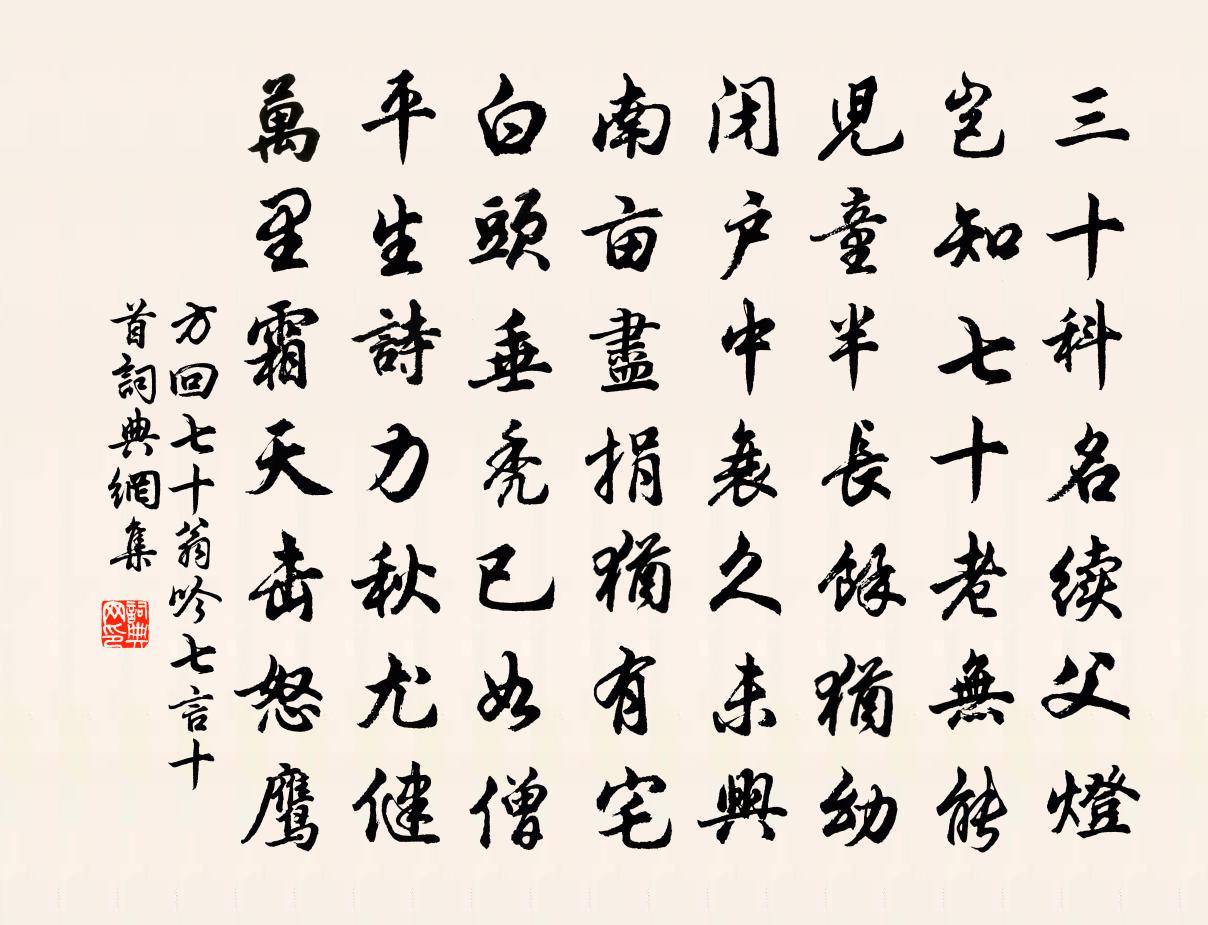 三十科名续父燈
岂知七十老無能
児童半長餘猶幼
闭户中衰久未興
南亩盡捐猶有宅
白頭垂秃已如僧
平生詩力秋尤健
萬里霜天击怒鷹
方回七十翁吟七言十
首詞典網集
詞典
网印